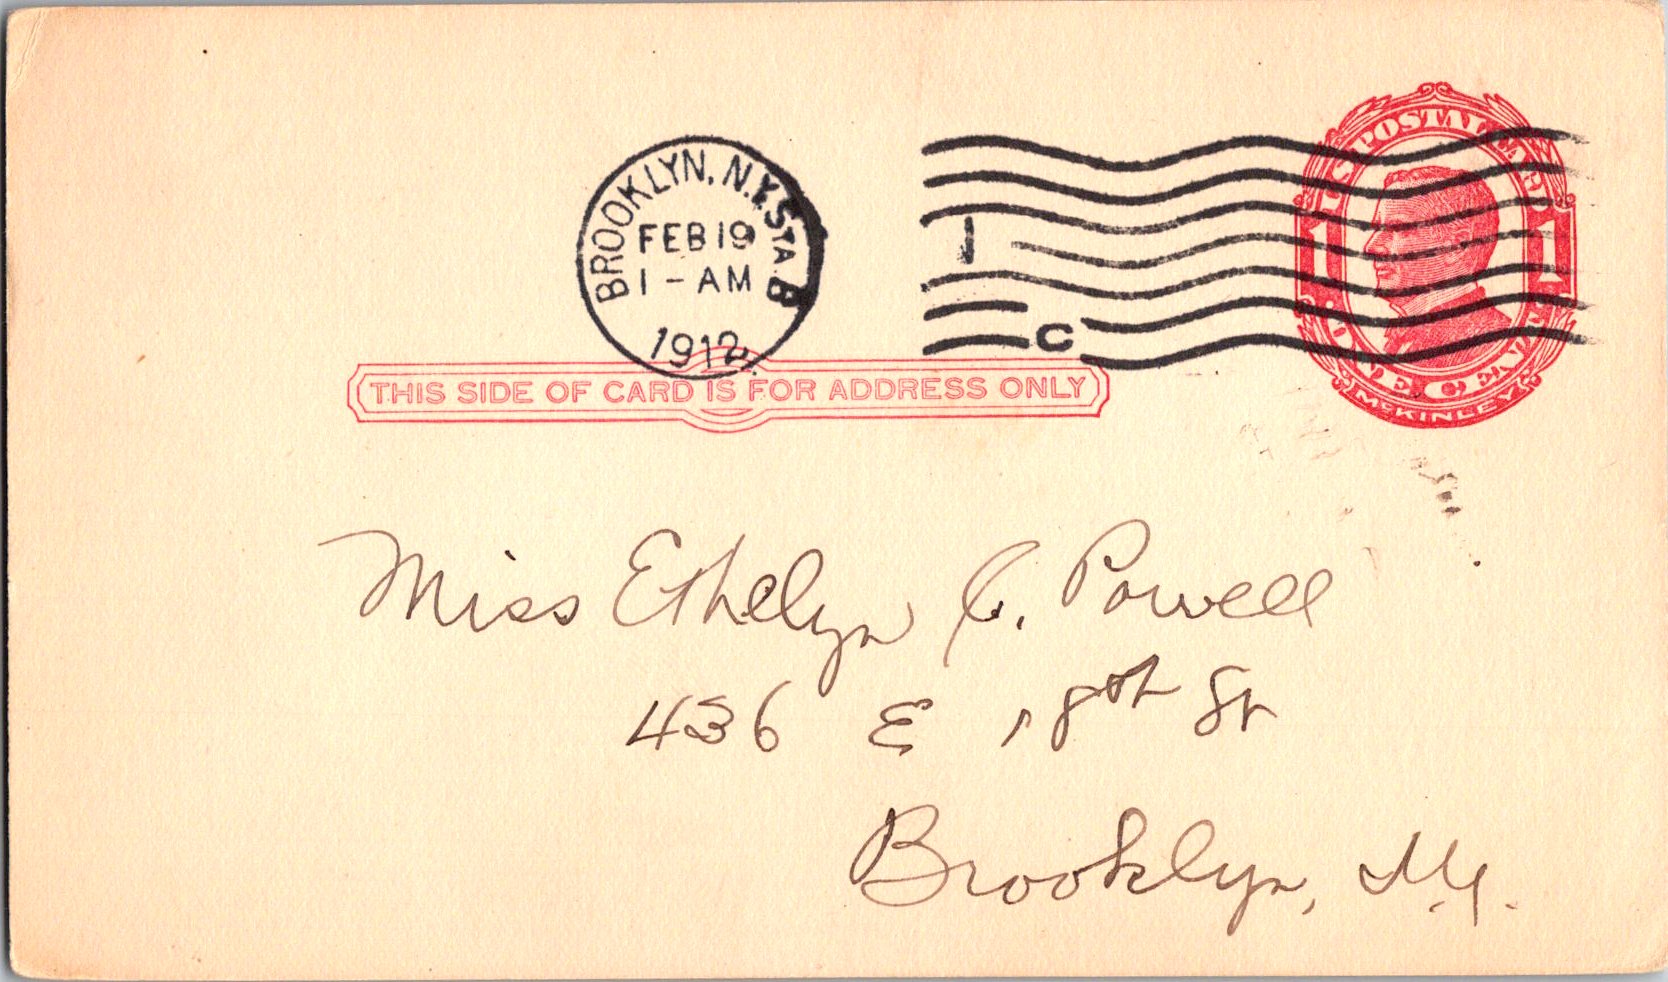 BROOKLYN, N.Y. STA. B
FEB 19
1 - AM
1912
1
C
U.S. POSTAL CARD
1 1
ONE CENT
McKINLEY
THIS SIDE OF CARD IS FOR ADDRESS ONLY
Miss Ethelyn C. Powell
436 E 18th St
Brooklyn, N.Y.